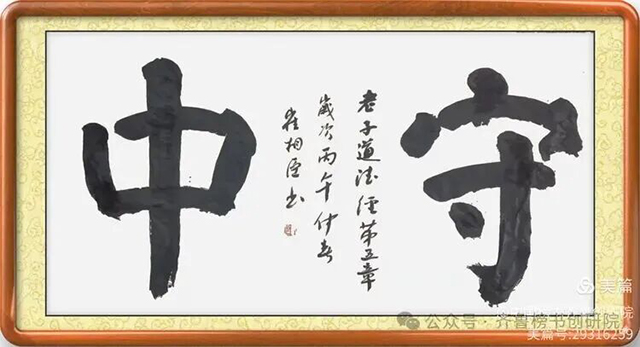 守中
老子道德經第五章
歲次丙午仲春
崔相臣书
美篇
公众号·齐鲁榜书创研院
美篇号:29316299